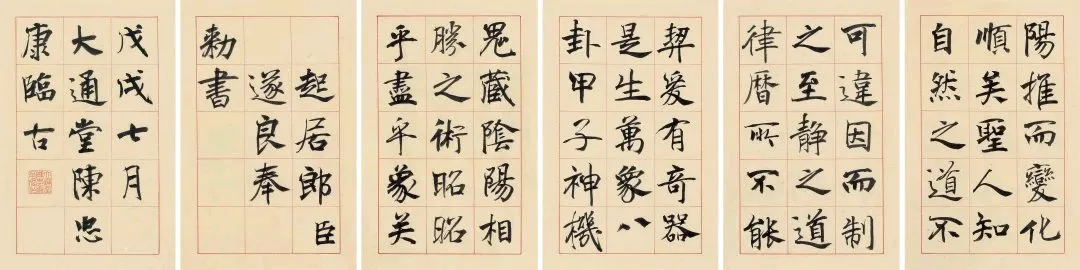 陽推而變化
順矣聖人知
自然之道不
可違因而制
之至静之道
律暦所不能
契爰有奇器
是生萬象八
卦甲子神機
鬼藏陰陽相
勝之術昭昭
乎盡乎象矣
起居郎臣
遂良奉
勅書
戊戌七月
大通堂陳忠
康臨古